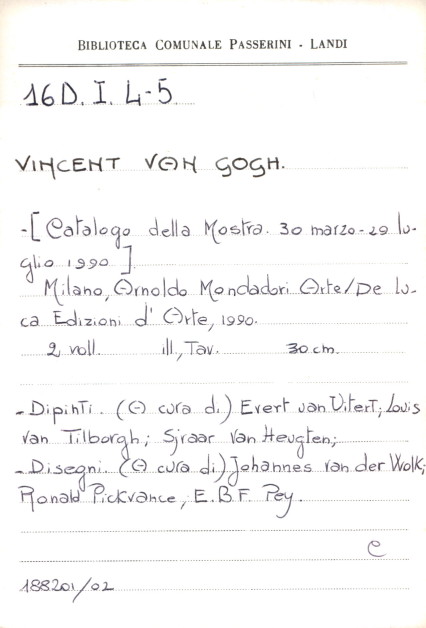 BIBLIOTECA COMUNALE PASSERINI - LANDI
16 D. I. 4-5
VINCENT VAN GOGH.
-[Catalogo della Mostra. 30 marzo-29 lu-
glio 1990]
Milano, Arnoldo Mondadori Arte/De Lu-
ca Edizioni d'Arte, 1990.
2 voll. ill., Tav. 30 cm.
- Dipinti. (A cura di) Evert van Uitert; Louis
van Tilborgh; Sjraar Van Heugten;
- Disegni. (A cura di) Johannes van der Wolk;
Ronald Pickvance, E.B.F. Pey.
C
188201/02